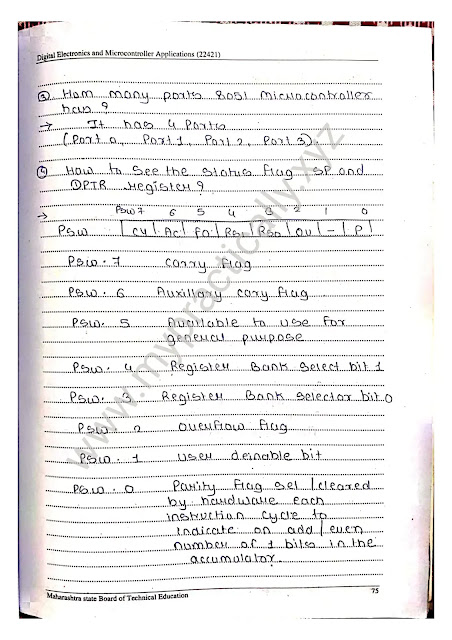 Digital Electronics and Microcontroller Applications (22421)
③ How many ports 8051 microcontroller
has ?
→ It has 4 Ports
(Port 0, Port 1, Port 2, Port 3).
④ How to see the status flag SP and
DPTR register ?
→ PSW7 6 5 4 3 2 1 0
PSW CY AC F0 RS1 RS0 OV - P
PSW. 7 carry flag
PSW. 6 Auxillary cary flag
PSW. 5 Available to use for
general purpose
PSW. 4 Register Bank Select bit 1
PSW. 3 Register Bank selector bit 0
PSW 2 overflow flag
PSW. 1 user deinable bit
PSW. 0 Parity flag sel / cleared
by hardware each
instruction cycle to
indicate on add / even
number of 1 bits in the
accumulator.
www.mypractically.xyz
Maharashtra state Board of Technical Education
75